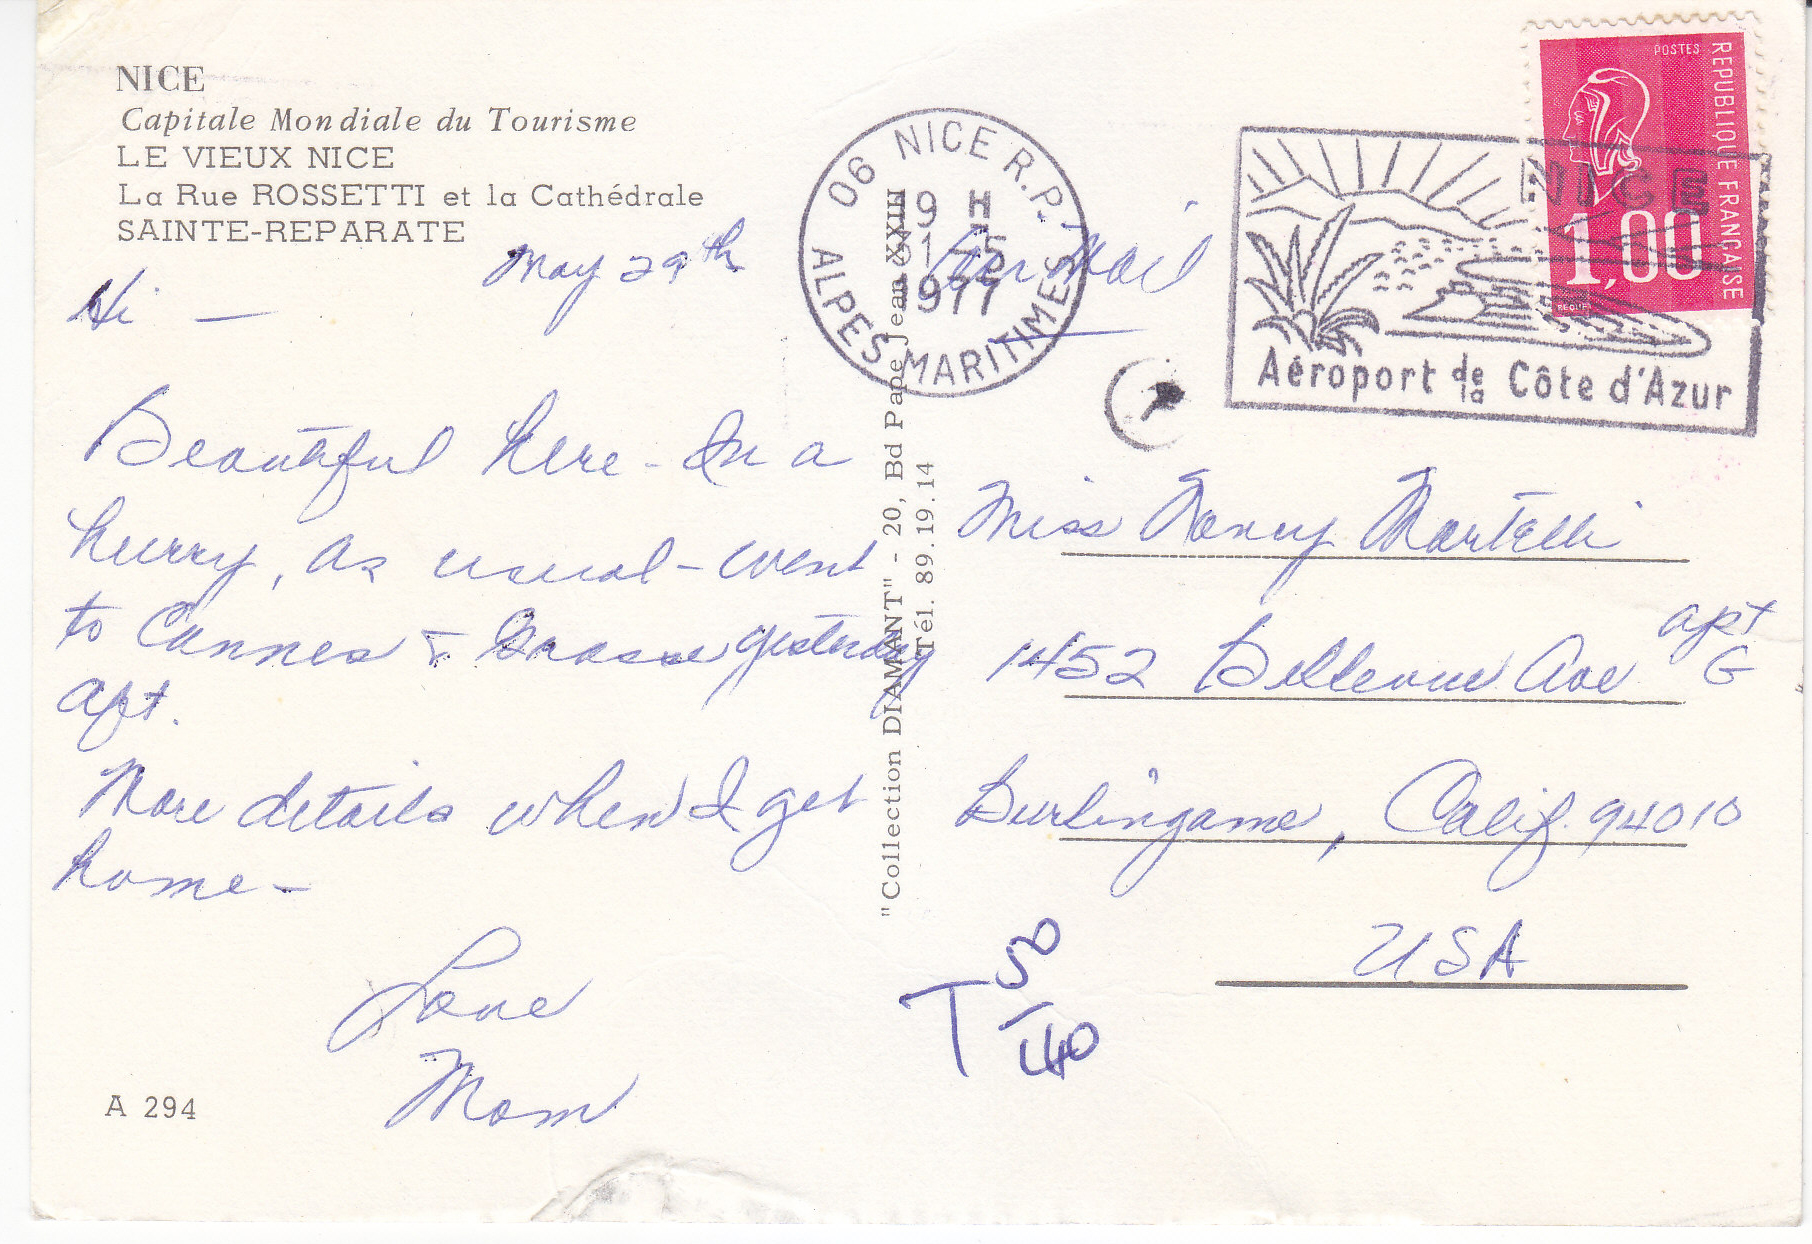 NICE
Capitale Mondiale du Tourisme
LE VIEUX NICE
La Rue ROSSETTI et la Cathédrale
SAINTE-REPARATE
May 29th
Hi —
Beautiful here - In a
hurry, as usual - went
to Cannes & Grasse yesterday
aft.
More details when I get
home -
Love
Mom
A 294
"Collection DIAMANT" - 20, Bd Pape Jean XXIII
Tél. 89.19.14
06 NICE R.P.
19 H
1977
ALPES MARITIMES
Air Mail
NICE
Aéroport de la Côte d'Azur
POSTES
REPUBLIQUE FRANÇAISE
1,00
Miss Nancy Martelli
1452 Bellevue Ave apt G
Burlingame, Calif. 94010
USA
T 50/140